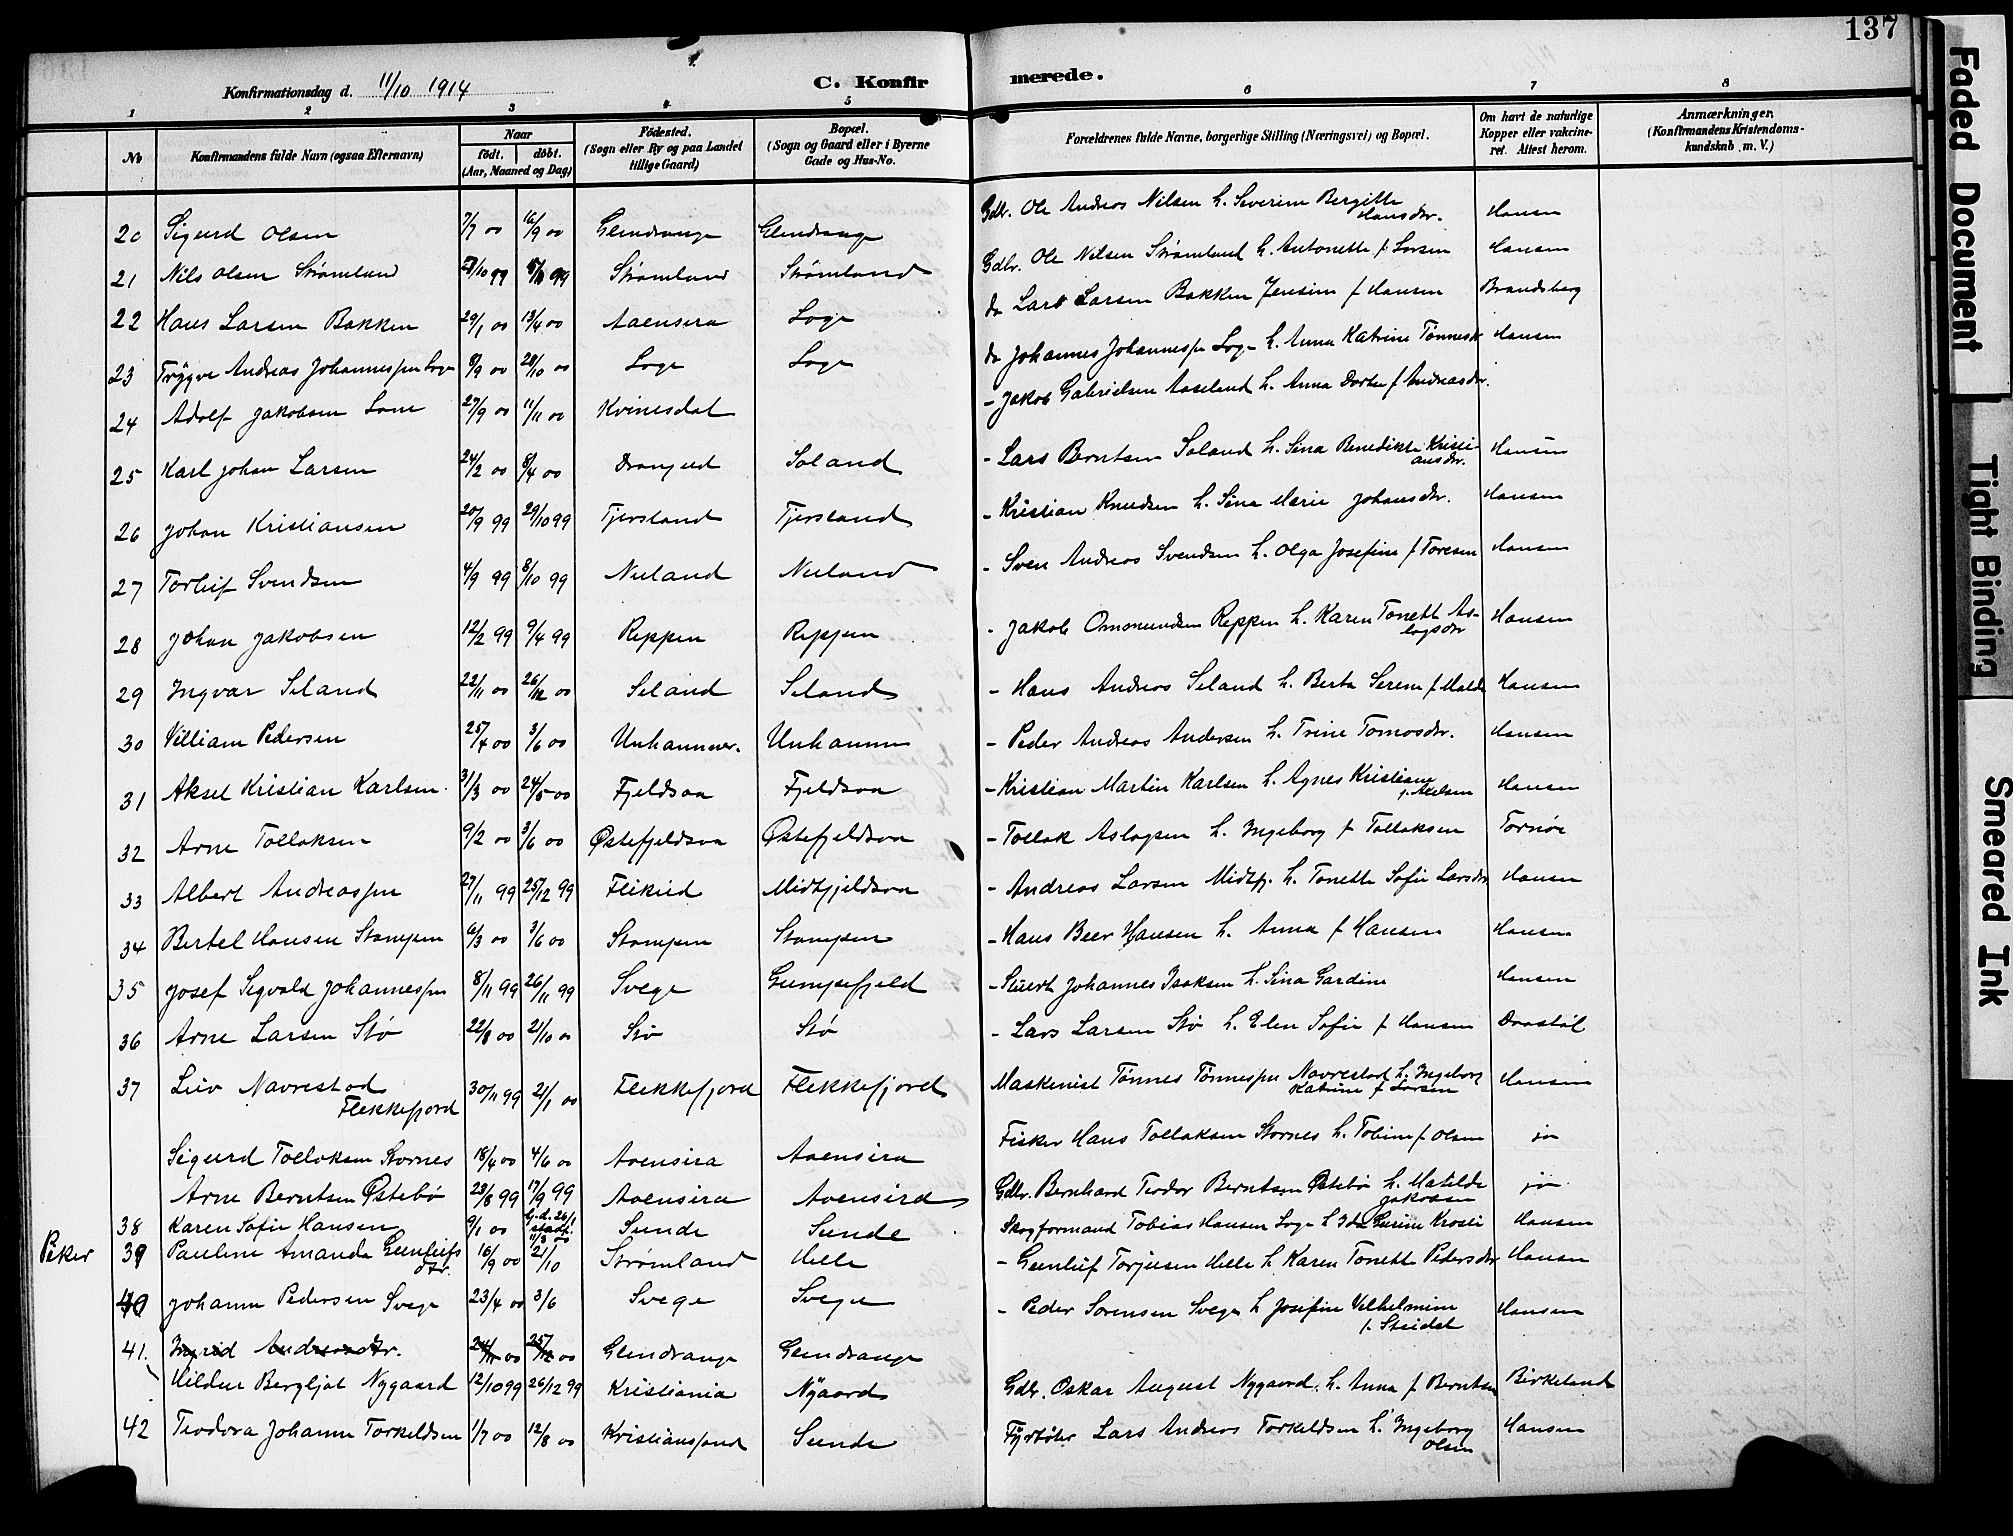 137
Konfirmationsdag d. 11/10 1914
C. Konfirmerede.
1 2 3 4 5 6 7 8
No
Konfirmandens fulde Navn (ogsaa Efternavn)
Naar
født. døbt.
(Aar, Maaned og Dag)
Fødested.
(Sogn eller By og paa Landet
tillige Gaard)
Bopæl.
(Sogn og Gaard eller i Byerne
Gade og Hus-No.
Forældrenes fulde Navne, borgerlige Stilling (Næringsvei) og Bopæl.
Om havt de naturlige
Kopper eller vakcine-
ret. Attest herom.
Anmærkninger.
(Konfirmandens Kristendoms-
kundskab m. V.)
20 Sigurd Olsen 7/7 00 16/9 00 Glendrange Glendrange Gdbr. Ole Andreas Nilsen h. Severine Bergitte Hansdr. Hansen
21 Nils Olsen Strømland 10 99 99 Strømland Strømland Gdbr. Ole Nilsen Strømland h. Antonette f. Larsen Hansen
22 Hans Larsen Bakken 29/1 00 13/4 00 Aaensira Loge do Lars Larsen Bakken Jensine f Hansen Brandsberg
23 Trygve Andreas Johannessen Loge 8/9 00 28/10 00 Loge Loge do Johannes Johannessen Loge h. Anna Katrine Tønnesdr Hansen
24 Adolf Jakobsen Lone 27/9 00 11/11 00 Kvinesdal - Jakob Gabrielsen Aaseland h. Anna Dorthe f Andreasdr.
25 Karl Johan Larsen 24/2 00 8/4 00 Drangeid Soland - Lars Berntsen Soland h. Sina Benedikte Kristiansdr. Hansen
26 Johan Kristiansen 20/9 99 29/10 99 Tjersland Tjersland - Kristian Knudsen h. Sina Marie Johansdr. Hansen
27 Torleif Svendsen 4/9 99 8/10 99 Nuland Nuland - Sven Andreas Svendsen h. Olga Josefine f Toresen Hansen
28 Johan Jakobsen 12/2 99 9/4 99 Reppen Reppen - Jakob Ommundsen Reppen h. Karen Tonette Aslagsdr Hansen
29 Ingvar Seland 22/11 00 26/12 00 Seland Seland - Hans Andreas Seland h. Berta Serene f Hansen
30 Villiam Pedersen 25/4 00 3/6 00 Unhammer. Unhamm - Peder Andreas Andersen h. Trine Tomasdr. Hansen
31 Aksel Kristian Karlsen 31/3 00 24/5 00 Fjeldsaa Fjeldsaa - Kristian Martin Karlsen h. Agnes Kristiane f. Axelsen Hansen
32 Arne Tollaksen 9/2 00 3/6 00 Østefjeldsaa Østefjeldsaa - Tollak Aslagsen h. Ingeborg f Tollaksen Tornøe
33 Albert Andreassen 27/11 99 25/12 99 Fleikeid Midtfjeldsaa - Andreas Larsen Midtfj. h. Tonette Sofie Larsdr Hansen
34 Bertel Hansen Stampen 6/3 00 3/6 00 Stampen Stampen - Hans Beer Hansen h. Anna f Hansen Hansen
35 Josef Sigvald Johannessen 8/11 99 26/11 99 Svege Gumpefjeld - Stuert Johannes Isaksen h. Sina Gardine Hansen
36 Arne Larsen Stø 22/8 00 21/10 00 Stø Stø - Lars Larsen Stø h. Elen Sofie f Hansen Draastøl
37 Leiv Navrestad Flekkefjord 30/11 99 21/1 00 Flekkefjord Flekkefjord Maskinist Tønnes Tønnessen Navrestad h. Ingeborg Katrine f Larsen Hansen
Sigurd Tollaksen Stornes 18/4 00 4/6 00 Aaensira Aaensira Fisker Hans Tollaksen Stornes h. Tobine f Olsen ja
Arne Berntsen Østebø 23/8 99 17/9 99 Aaensira Aaensira Gdbr. Bernhard Teodor Berntsen Østebø h. Matilde Jakobsen ja
38 Karen Sofie Hansen 9/1 00 h.d. 26/1 stadf. 11/3 00 Sunde Sunde Skogformand Tobias Hansen Loge h Ida Gurine Krosli Hansen
Piker 39 Pauline Amanda Gunleifsdtr. 16/9 00 21/10 Strømland Helle - Gunleif Torjusen Helle h Karen Tonette Pedersdtr Hansen
40 Johanne Pedersen Svege 23/4 00 3/6 Svege Svege - Peder Sørensen Svege h Josefine Velhelmine f. Steidel Hansen
41. Ingrid Andreasdtr. 24/11 00 25/12 00 Glendrange Glendrange
Hildur Bergljot Nygaard 12/10 99 26/12 99 Kristiania Nygaard Gdbr. Oskar August Nygaard. h. Anna f Berntsen Birkeland
42 Teodora Johanne Torkeldsen 1/7 00 12/8 00 Kristianssand Sunde Fyrbøter Lars Andreas Torkeldsen h. Ingeborg Olsen Hansen
Faded Document
Tight Binding
Smeared Ink